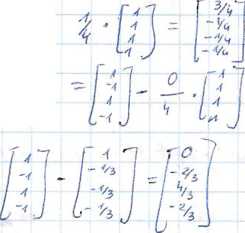 1/4 · [1 1 1 1] = [3/4 -1/4 -1/4 -1/4]
= [1 -1 1 -1] - 0/4 · [1 1 1 1]
[1 -1 1 -1] - [1 -1/3 -1/3 -1/3] = [0 -2/3 4/3 -2/3]